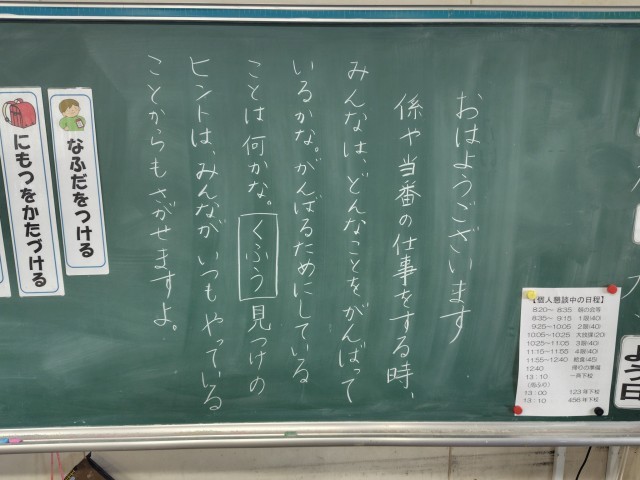 おはようございます
係や当番の仕事をする時、
みんなは、どんなことをがんばって
いるかな。がんばるためにしている
ことは何かな。くふう見つけの
ヒントは、みんながいつもやっている
ことからもさがせますよ。
なふだをつける
にもつをかたづける
【個人懇談中の日程】
8:20～ 8:35 朝の会等
8:35～ 9:15 1限(40)
9:25～10:05 2限(40)
10:05～10:25 大放課(20)
10:25～11:05 3限(40)
11:15～11:55 4限(40)
11:55～12:40 給食(45)
12:40 帰りの準備
13:10 一斉下校
13:00 123年下校
13:10 456年下校